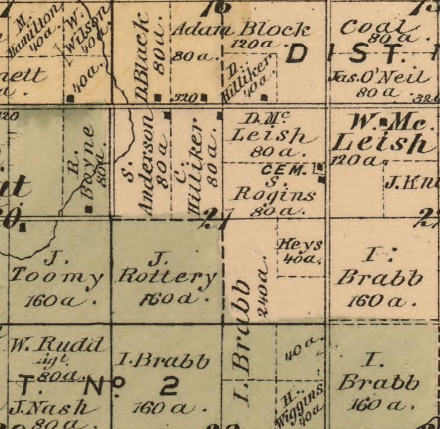 M. Hamilton
40 a.
W. Wilson
40 a.
40 a.
D. Black
80 a.
16
Adam Block
120 a
80 a.
320
D. Hilliker
40 a.
Coal
80 a.
DIST.
Jas. O'Neil
80 a.
320
R. Boyne
80 a.
S. Anderson
80 a
C. Hilliker
80 a.
D. Mc
Leish
80 a.
CEM.
S.
Rogins
80 a.
W. Mc.
Leish
120 a.
21
J.
Toomy
160 a.
J.
Rottery
160 a.
I. Brabb
240 a.
Keys
40 a.
I.
Brabb
160 a.
W. Rudd
agt.
80 a.
T. No. 2
J. Nash
80 a.
I. Brabb
160 a.
40 a.
H. Wiggins
40 a
I.
Brabb
160 a.